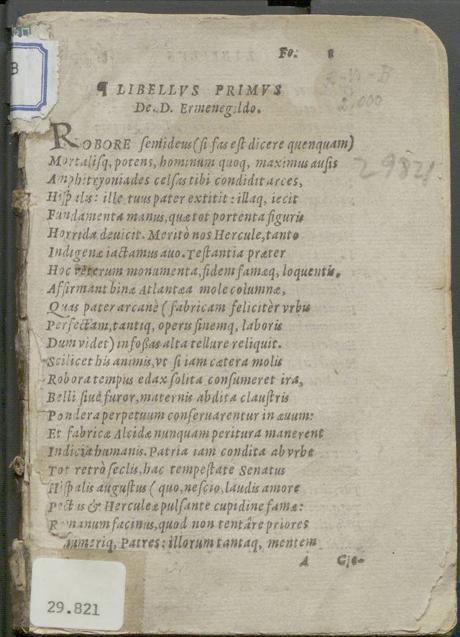 B
Fo: 1
2-VI-B
2.000
29821
¶ LIBELLVS PRIMVS
De. D. Ermenegildo.
ROBORE semideus (si fas est dicere quenquam)
Mortalisq, potens, hominum quoq, maximus ausis
Amphitryoniades celsas tibi condidit arces,
Hispalis: ille tuus pater extitit: illaq, iecit
Fundamenta manus, quæ tot portenta figuris
Horrida deuicit. Meritò nos Hercule, tanto
Indigenæ iactamus auo. Testantia præter
Hoc veterum monumenta, fidem famæq, loquentis.
Assirmant binæ Atlantæa mole columnæ,
Quas pater arcanè (fabricam felicitèr vrbis
Perfectam, tantiq, operis finemq, laboris
Dum videt) infossas alta tellure reliquit.
Scilicet his animis, vt si iam cætera molis
Robora tempus edax solita consumeret ira,
Belli siuè furor, maternis abdita claustris
Pondera perpetuum conseruarentur in æuum:
Et fabricæ Alcidæ nunquam peritura manerent
Indicia humanis. Patria iam condita ab vrbe
Tot retrò seclis, hac tempestate Senatus
Hispalis augustus (quo, nescio, laudis amore
Pectus & Herculeæ pulsante cupidine famæ:
Romanum facinus, quod non tentâre priores
Patres: illorum tantaq, mentem
A
29.821